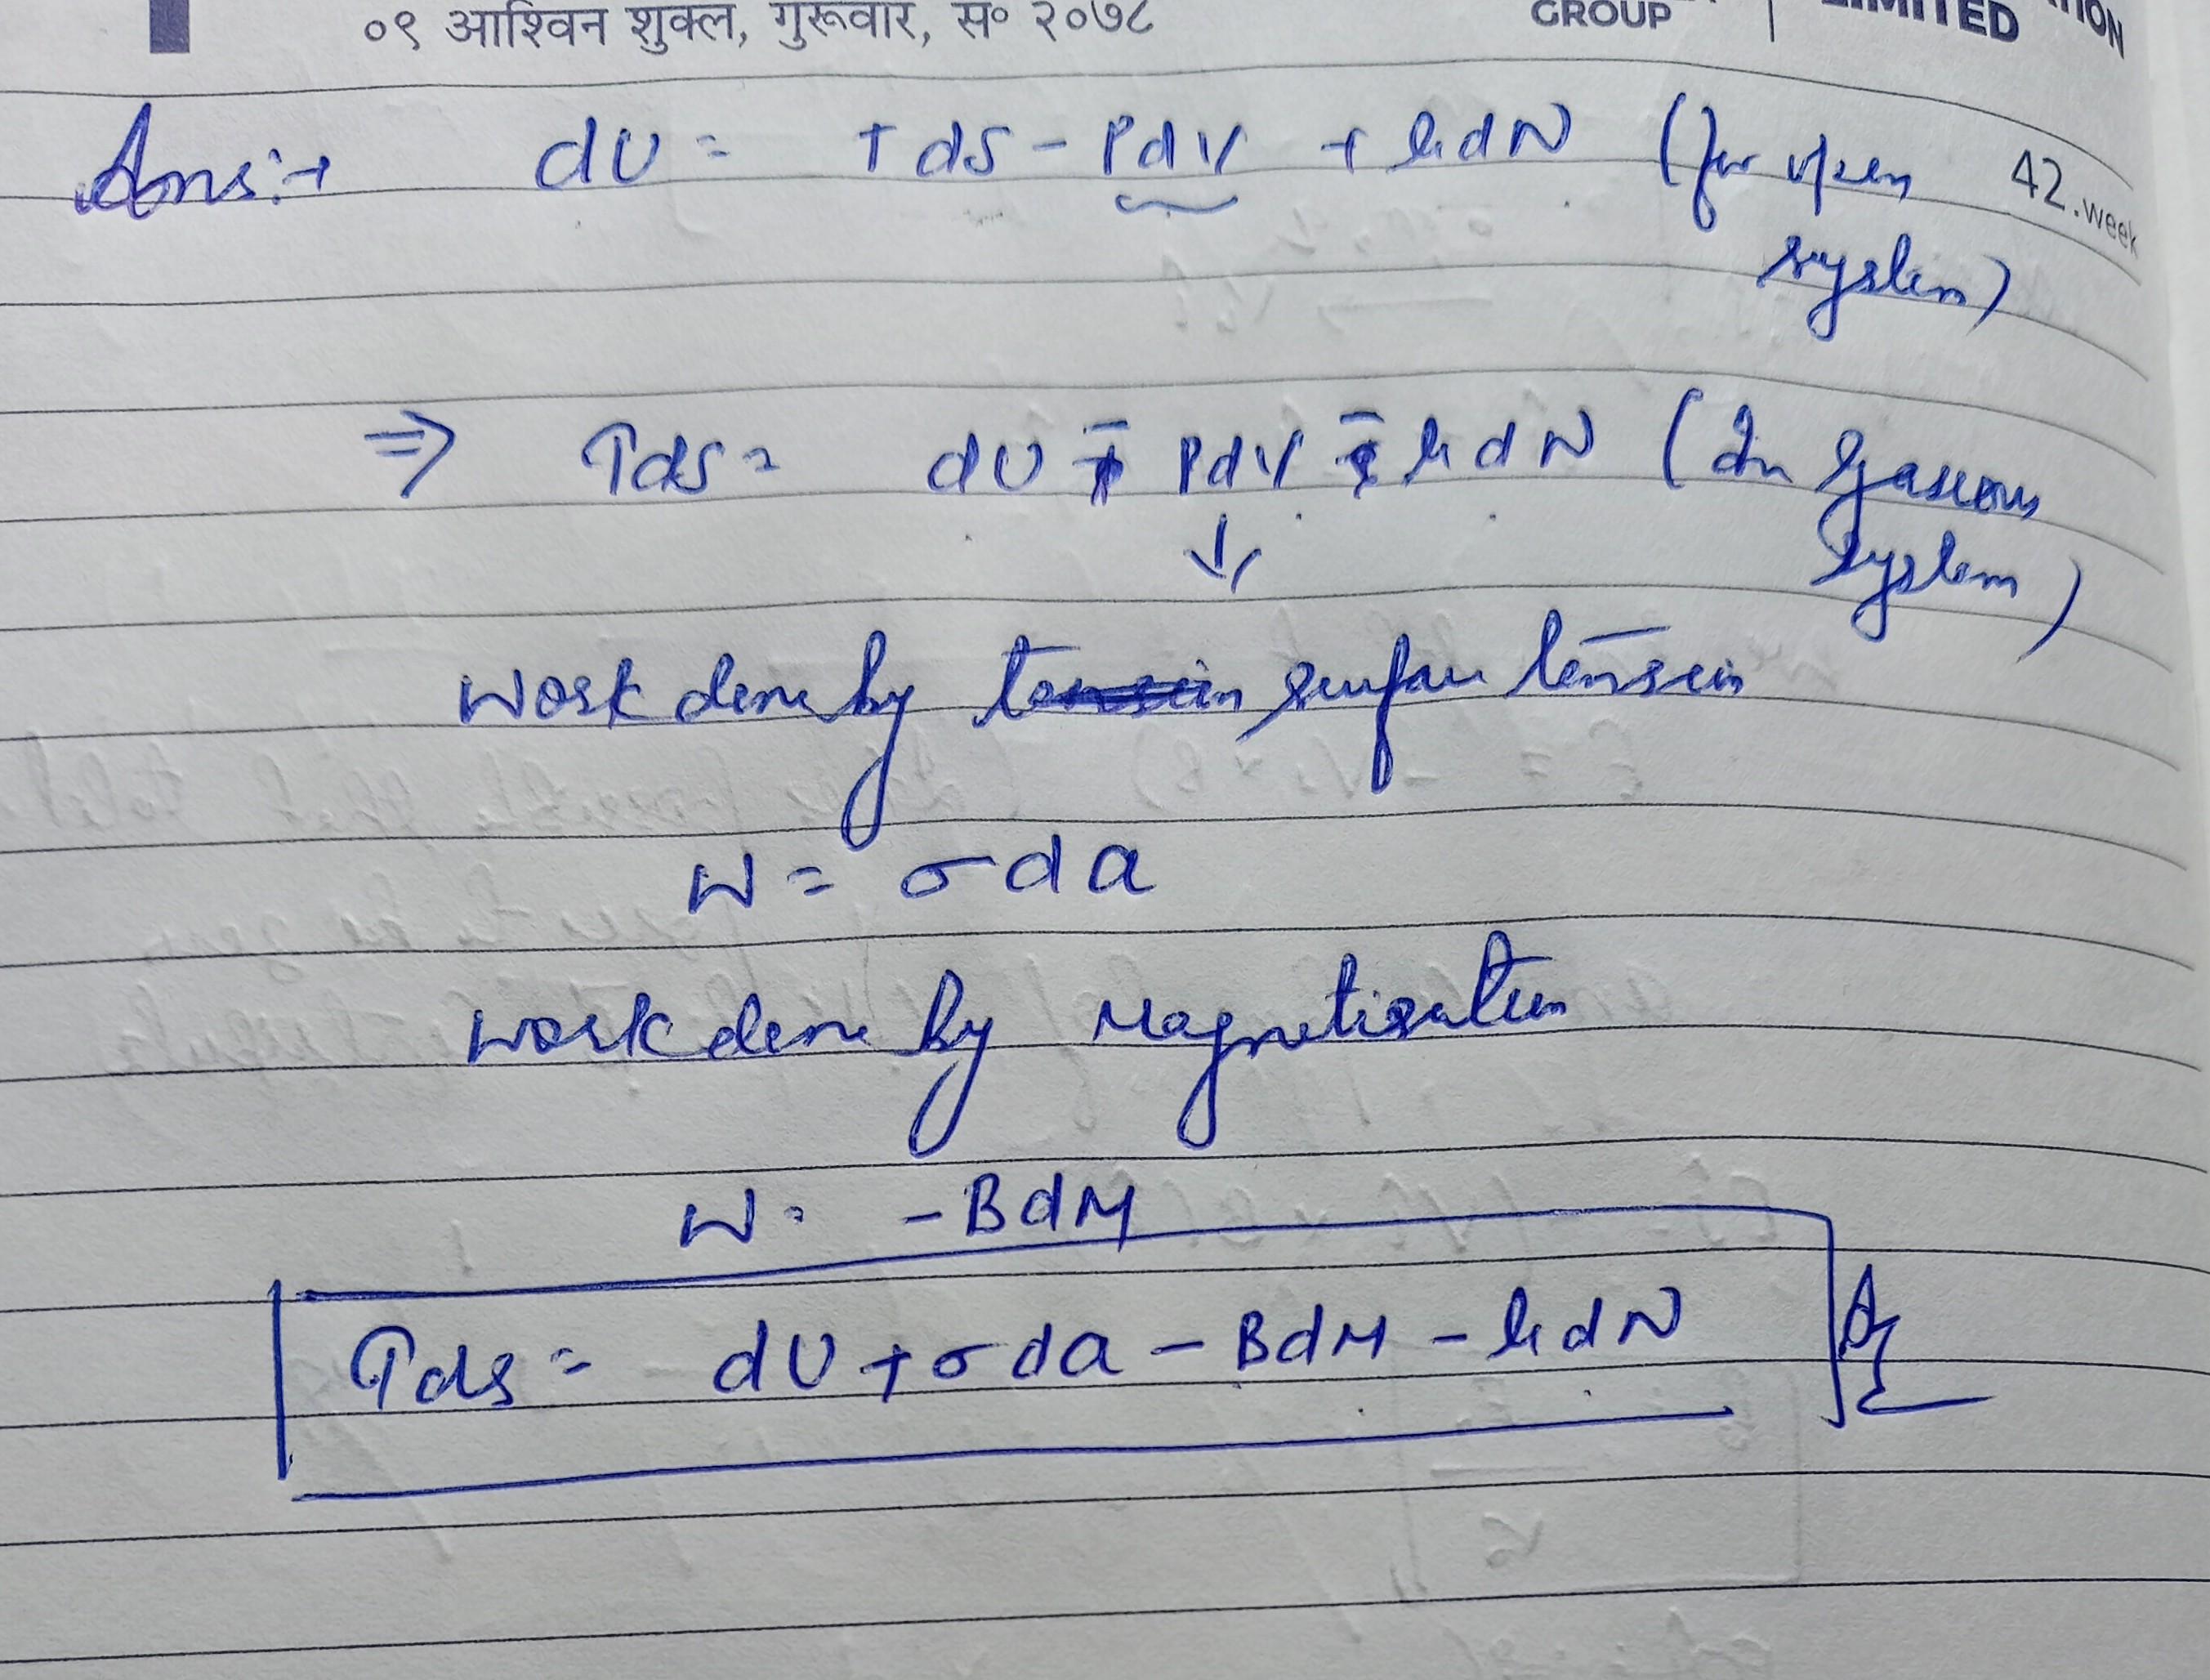 ०९ आश्विन शुक्ल, गुरूवार, स॰ २०७८
GROUP
LIMITED
42.week
Ans:→ dU = TdS - PdV + μdN (for open
system)
⇒ TdS = dU + PdV - μdN (In Gaseous
System)
↓
Work done by surface tension
W = σda
Work done by Magnetisation
W = -BdM
TdS = dU + σda - BdM - μdN A